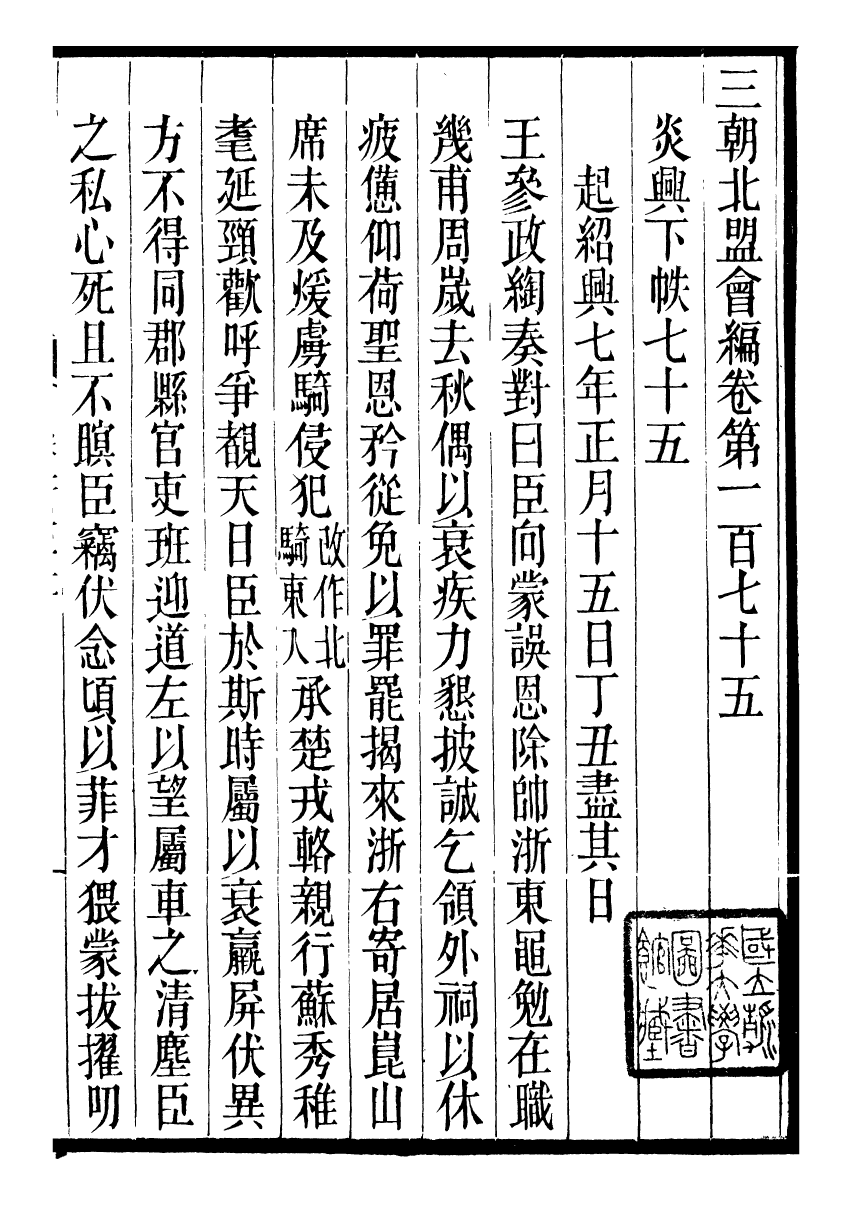 三朝北盟會編卷第一百七十五
炎興下帙七十五
起紹興七年正月十五日丁丑盡其日
王參政綯奏對曰臣向蒙誤恩除帥浙東黽勉在職
幾甫周歲去秋偶以衰疾力懇披誠乞領外祠以休
疲憊仰荷聖恩矜從免以罪罷揭來浙右寄居崑山
席未及煖虜騎侵犯改作北騎東入承楚戎輅親行蘇秀稚
耄延頸歡呼爭覩天日臣於斯時屬以衰羸屏伏異
方不得同郡縣官吏班迎道左以望屬車之清塵臣
之私心死且不瞑臣竊伏念頃以菲才猥蒙拔擢叨
國立清華大學圖書館藏